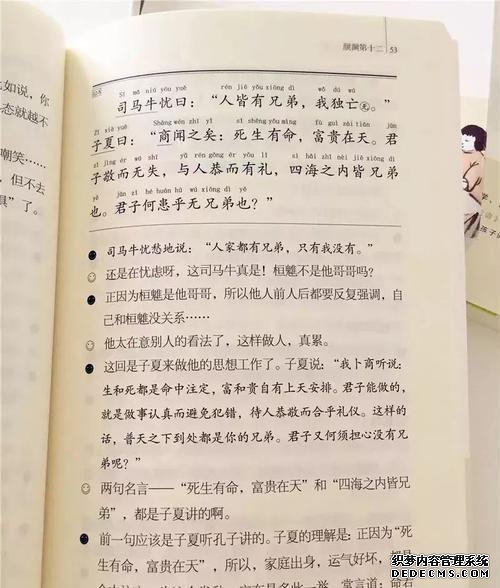 颜渊第十二 53
司马牛忧曰：“人皆有兄弟，我独亡。”
子夏曰：“商闻之矣：死生有命，富贵在天。君
子敬而无失，与人恭而有礼，四海之内皆兄弟
也。君子何患乎无兄弟也？”
司马牛忧愁地说：“人家都有兄弟，只有我没有。”
还是在忧虑呀，这司马牛真是！桓魋不是他哥哥吗？
正因为桓魋是他哥哥，所以他人前人后都要反复强调，自
己和桓魋没关系……
他太在意别人的看法了，这样做人，真累。
这回是子夏来做他的思想工作了。子夏说：“我卜商听说：
生和死都是命中注定，富和贵自有上天安排。君子能做的，
就是做事认真而避免犯错，待人恭敬而合乎礼仪。这样的
话，普天之下到处都是你的兄弟。君子又何须担心没有兄
弟呢？”
两句名言——“死生有命，富贵在天”和“四海之内皆兄
弟”，都是子夏讲的啊。
前一句应该是子夏听孔子讲的。子夏的理解是：正因为“死
生有命，富贵在天”，所以，家庭出身，运气好坏，都是
比如说，你
态就越不
嘲笑……
，但不去
惧”了。
织梦内容管理系统
DEDECMS.COM